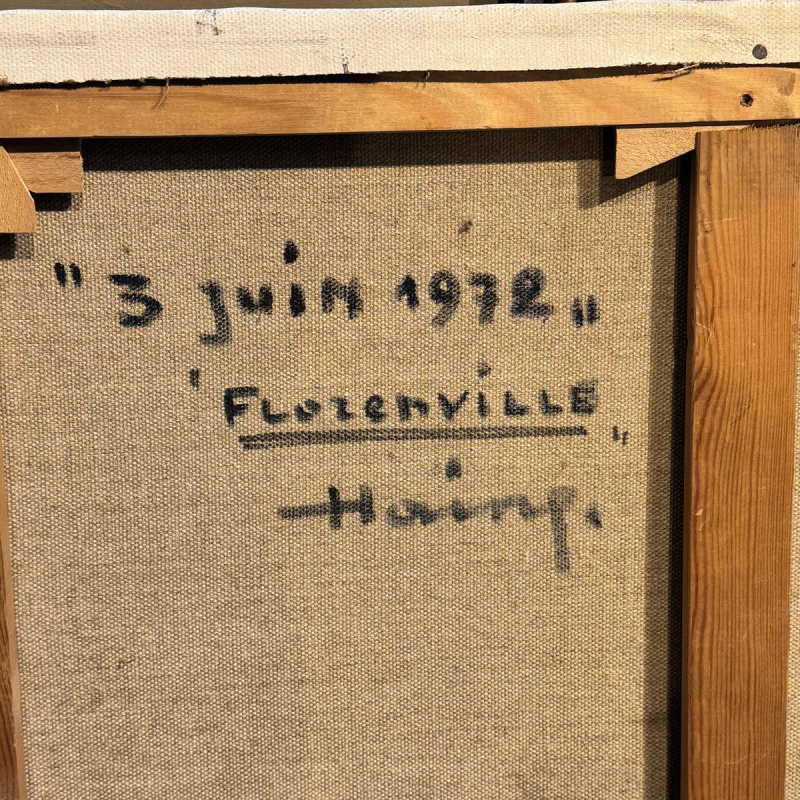 " 3 juin 1972 "
" FLorenviLLE "
Haing.